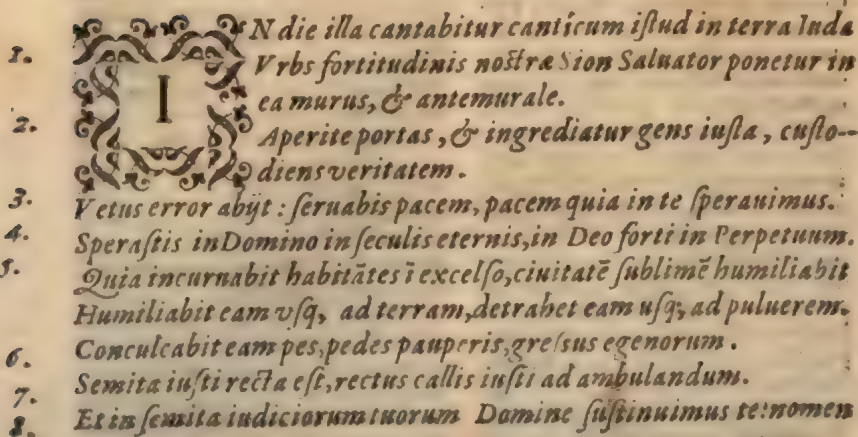 IN die illa cantabitur canticum iſtud in terra Iuda
1. Vrbs fortitudinis noſtræ Sion Saluator ponetur in
ea murus, & antemurale.
2. Aperite portas, & ingrediatur gens iuſta, cuſto--
diens veritatem.
3. Vetus error abijt: ſeruabis pacem, pacem quia in te ſperauimus.
4. Speraſtis in Domino in ſeculis eternis, in Deo forti in Perpetuum.
5. Quia incurnabit habitãtes ĩ excelſo, ciuitatẽ ſublimẽ humiliabit
Humiliabit eam vſq, ad terram, detrahet eam uſq; ad puluerem.
6. Conculcabit eam pes, pedes pauperis, greſsus egenorum.
7. Semita iuſti recta eſt, rectus callis iuſti ad ambulandum.
8. Et in ſemita iudiciorum tuorum Domine ſuſtinuimus te: nomen